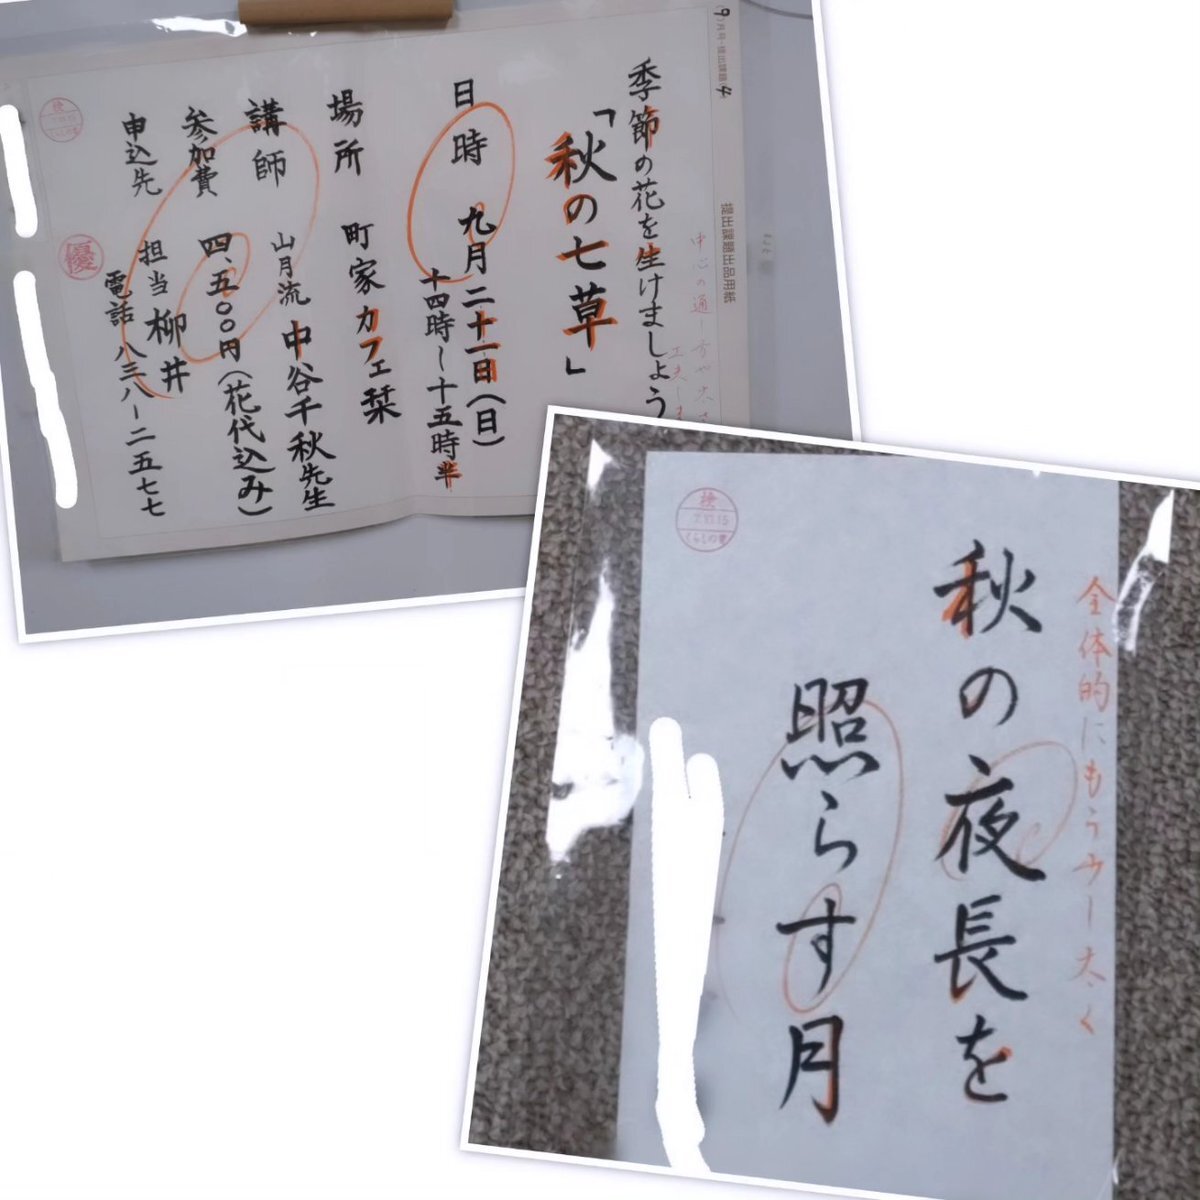 9月号・提出課題4
提出課題出品用紙
季節の花を生けましょう
「秋の七草」
日時 九月二十一日(日)
十四時〜十五時半
場所 町家カフェ栞
講師 山月流 中谷千秋先生
参加費 四、五〇〇円(花代込み)
申込先 担当 柳井
電話 八三八-二五七七
優
全体的にもう少し太く
秋の夜長を
照らす月
検
7.10.15
くらしの書